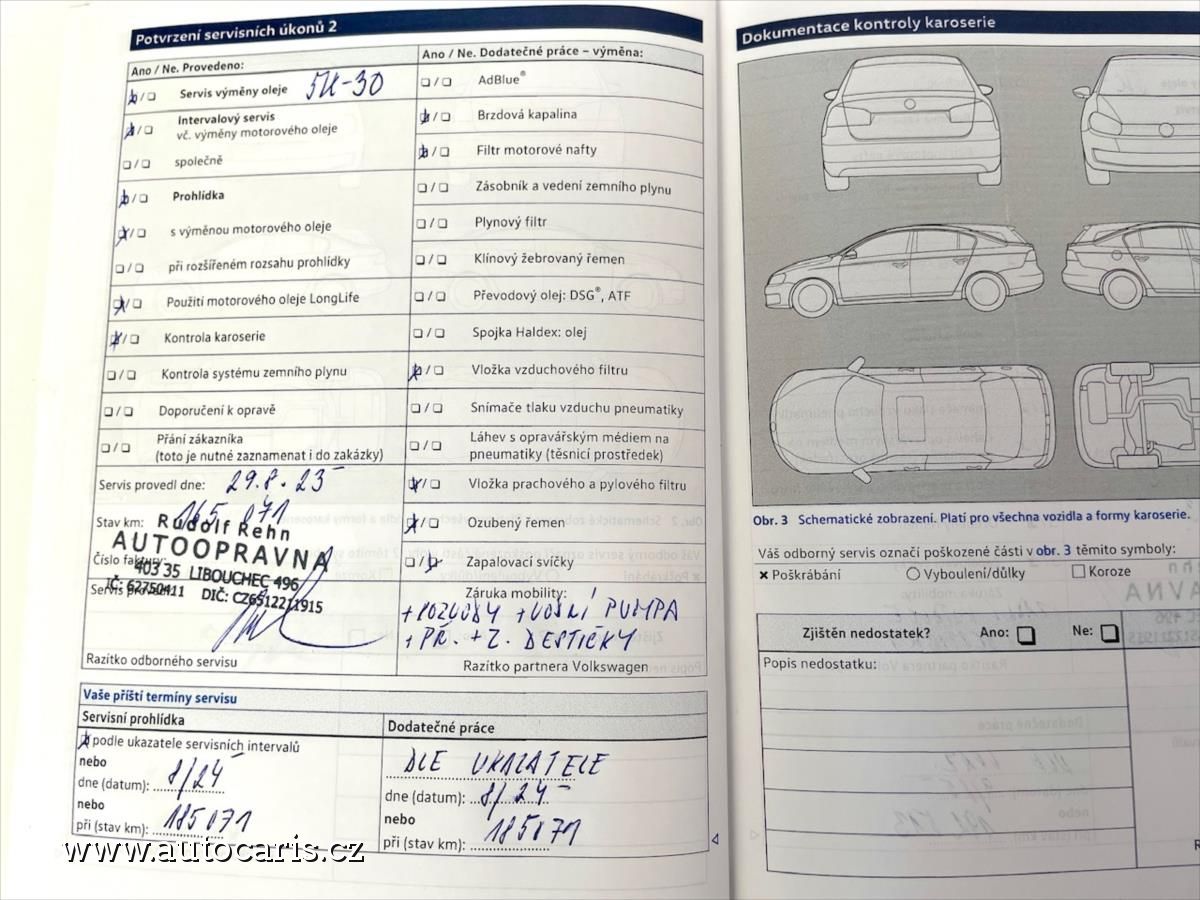 Potvrzení servisních úkonů 2
Ano / Ne. Provedeno:
Servis výměny oleje 5W-30
Intervalový servis
vč. výměny motorového oleje
společně
Prohlídka
s výměnou motorového oleje
při rozšířeném rozsahu prohlídky
Použití motorového oleje LongLife
Kontrola karoserie
Kontrola systému zemního plynu
Doporučení k opravě
Přání zákazníka
(toto je nutné zaznamenat i do zakázky)
Servis provedl dne: 29.8.23
Stav km: 165 071
Rudolf Rehn
AUTOOPRAVNA
Číslo faktury:
403 35 LIBOUCHEC 496
IČ: 62750411 DIČ: CZ6512211915
Servis provedl:
Razítko odborného servisu
Ano / Ne. Dodatečné práce – výměna:
AdBlue®
Brzdová kapalina
Filtr motorové nafty
Zásobník a vedení zemního plynu
Plynový filtr
Klínový žebrovaný řemen
Převodový olej: DSG®, ATF
Spojka Haldex: olej
Vložka vzduchového filtru
Snímače tlaku vzduchu pneumatiky
Láhev s opravářským médiem na
pneumatiky (těsnicí prostředek)
Vložka prachového a pylového filtru
Ozubený řemen
Zapalovací svíčky
Záruka mobility:
+ROZVODY +VODNÍ PUMPA
+PŘ. +Z. DESTIČKY
Razítko partnera Volkswagen
Vaše příští termíny servisu
Servisní prohlídka
podle ukazatele servisních intervalů
nebo
dne (datum): 8/24
nebo
při (stav km): 185071
Dodatečné práce
DLE UKAZATELE
dne (datum): 8/24
nebo
při (stav km): 185071
Dokumentace kontroly karoserie
Obr. 3 Schematické zobrazení. Platí pro všechna vozidla a formy karoserie.
Váš odborný servis označí poškozené části v obr. 3 těmito symboly:
Poškrábání Vyboulení/důlky Koroze
Zjištěn nedostatek? Ano: Ne:
Popis nedostatku:
www.autocaris.cz